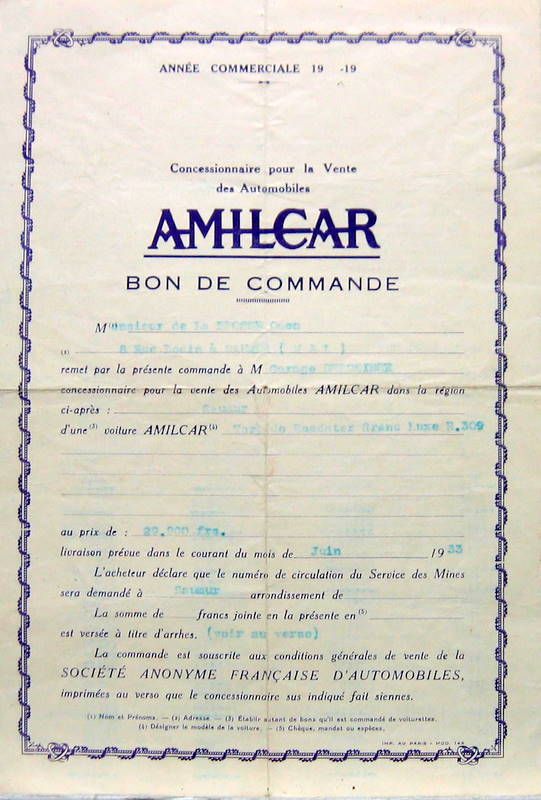 ANNÉE COMMERCIALE 19 -19
Concessionnaire pour la Vente
des Automobiles
AMILCAR
BON DE COMMANDE
M(1)onsieur de la
(2) 8 Rue à
remet par la présente commande à M Garage
concessionnaire pour la vente des Automobiles AMILCAR dans la région
ci-après : Saumur
d'une (3) voiture AMILCAR (4) Roadster Grand Luxe R.309
au prix de : 29.900 frs.
livraison prévue dans le courant du mois de Juin 1933
L'acheteur déclare que le numéro de circulation du Service des Mines
sera demandé à Saumur arrondissement de
La somme de francs jointe en la présente en (5)
est versée à titre d'arrhes. (voir au verso)
La commande est souscrite aux conditions générales de vente de la
SOCIÉTÉ ANONYME FRANÇAISE D'AUTOMOBILES,
imprimées au verso que le concessionnaire sus indiqué fait siennes.
(1) Nom et Prénoms. — (2) Adresse. — (3) Etablir autant de bons qu'il est commandé de voiturettes.
(4) Désigner le modèle de la voiture. — (5) Chèque, mandat ou espèces.
IMP. AU PARIS - MOD.